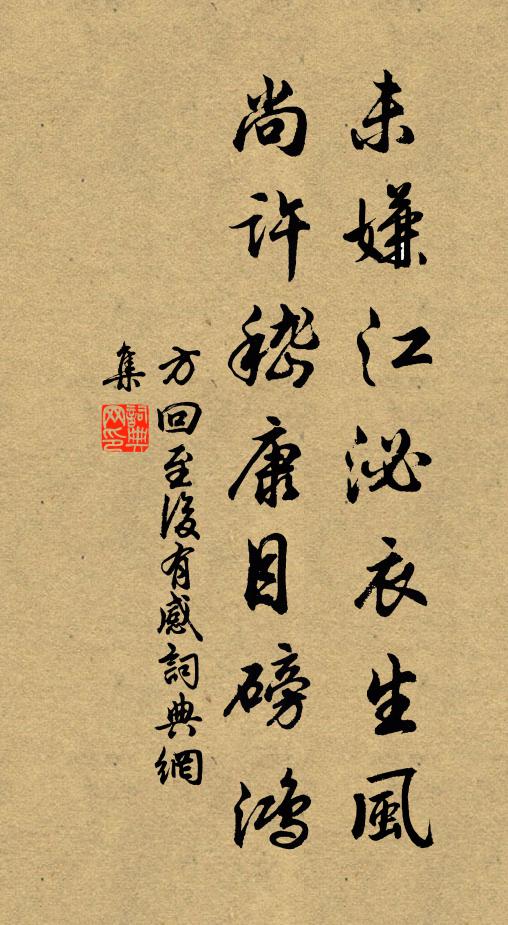 未嫌江泌衣生風
尚許嵇康目磅鴻
方回至後有感詞典網
集
詞典
网印